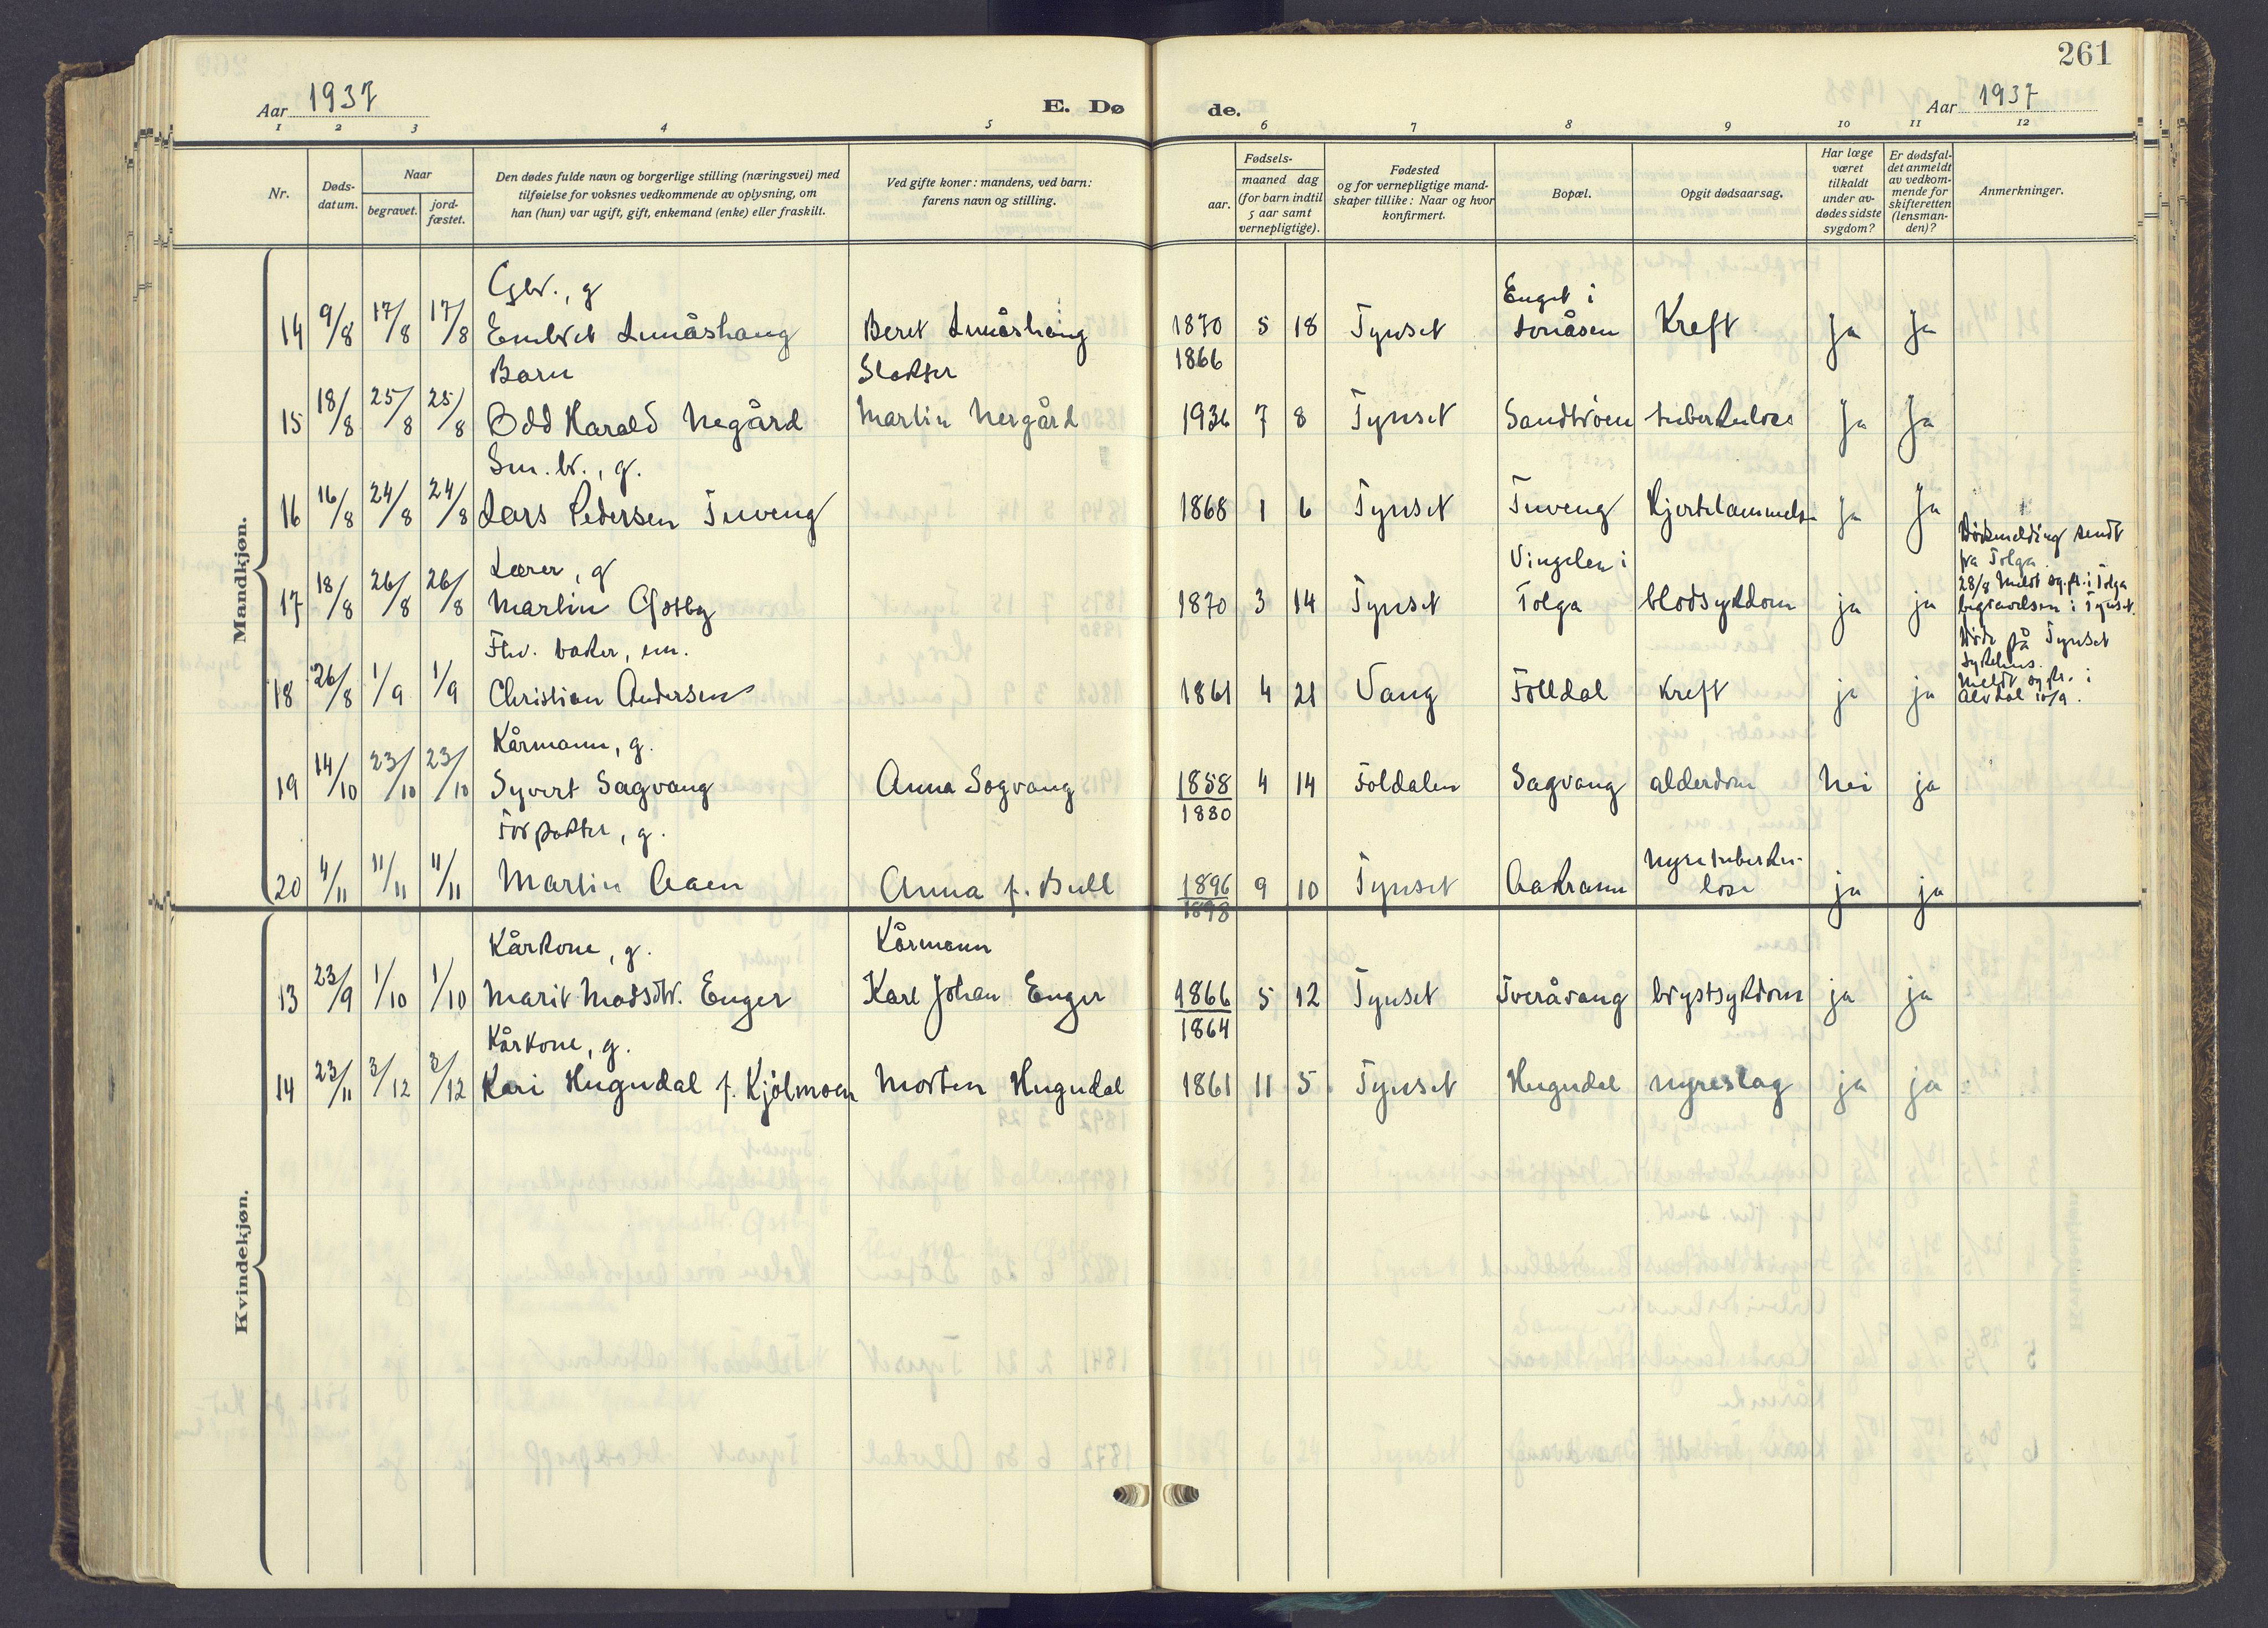 261
Aar 1937
E. Dø de.
Aar 1937
1 2 3 4 5 6 7 8 9 10 11 12
Nr.
Døds-
datum.
Naar
begravet.
jord-
fæstet.
Den dødes fulde navn og borgerlige stilling (næringsvei) med
tilføielse for voksnes vedkommende av oplysning, om
han (hun) var ugift, gift, enkemand (enke) eller fraskilt.
Ved gifte koner: mandens, ved barn:
farens navn og stilling.
Fødsels-
aar.
maaned dag
(for barn indtil
5 aar samt
vernepligtige).
Fødested
og for vernepligtige mand-
skaper tillike: Naar og hvor
konfirmert.
Bopæl.
Opgit dødsaarsag.
Har læge
været
tilkaldt
under av-
dødes sidste
sygdom?
Er dødsfal-
det anmeldt
av vedkom-
mende for
skifteretten
(lensman-
den)?
Anmerkninger.
Mandkjøn.
Gbr., g Enget i
14 9/8 17/8 17/8 Embret Lunåshaug Beret Lunåshaug 1870 5 18 Tynset Lonåsen Kreft Ja Ja
Barn Slakter 1866
15 18/8 25/8 25/8 Odd Harald Negård Martin Nergård 1936 7 8 Tynset Sandtrøen tuberkulose Ja Ja
Sm.br., g.
16 16/8 24/8 24/8 Lars Pedersen Tuveng 1868 1 6 Tynset Tuveng Hjertelammelse Ja Ja
Lærer, g Vingelen i
17 18/8 26/8 26/8 Martin Østby 1870 3 14 Tynset Tolga blodsykdom ja ja
Dødsmelding sendt
fra Tolga.
28/8 Meldt sg.pr. i Tolga
begravelsen i Tynset.
Fhv. baker, em.
18 26/8 1/9 1/9 Christian Andersen 1861 4 21 Vang Folldal Kreft ja ja
Døde på Tynset
Sykehus.
Meldt sg.pr. i
Alvdal 10/9.
Kårmann, g.
19 14/10 23/10 23/10 Syvert Sagvang Anna Sagvang 1858 4 14 Foldalen Sagvang alderdom Nei ja
Forpakter, g. 1880
20 4/11 11/11 11/11 Martin Aaen Anna f. Bull 1896 9 10 Tynset Aakrann Nyretuberku-
lose ja ja
1898
Kvindekjøn.
Kårkone, g. Kårmann
13 23/9 1/10 1/10 Marit Madsdtr. Enger Karl Johan Enger 1866 5 12 Tynset Tveråvang brystsykdom ja ja
Kårkone, g. 1864
14 23/11 3/12 3/12 Kari Hugndal f. Kjølmoen Morten Hugndal 1861 11 5 Tynset Hugndal nyreslag ja ja